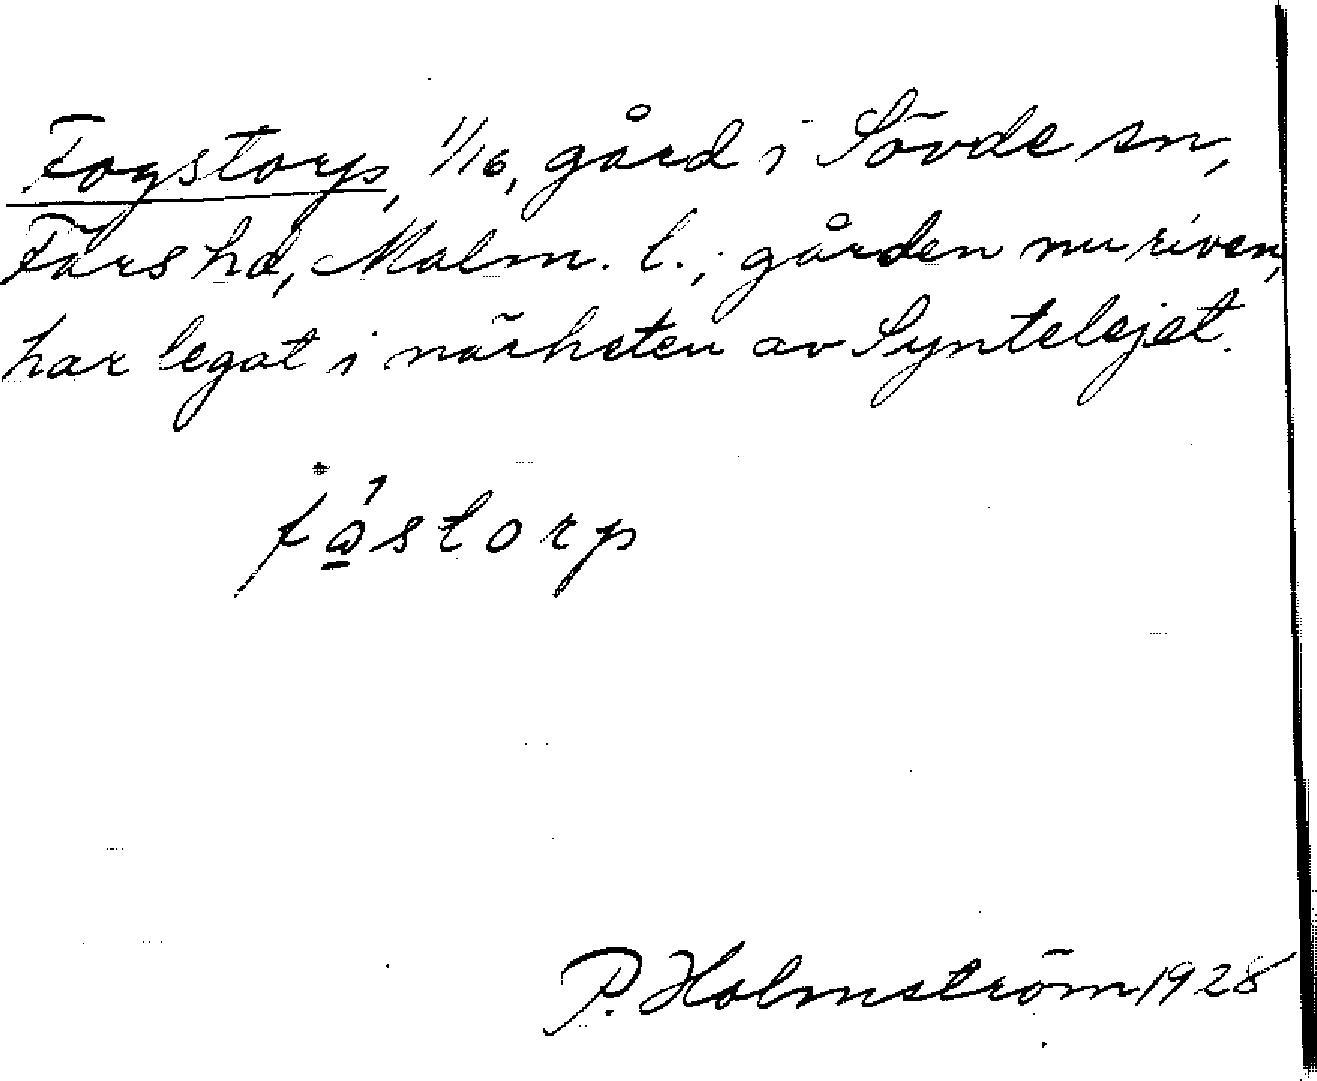 Fogstorp, 1/16, gård i Sövde sn,
Färs hd, Malm. l.; gården nu riven,
har legat i närheten av Syntelejet.
fåstorp
P. Holmström 1928